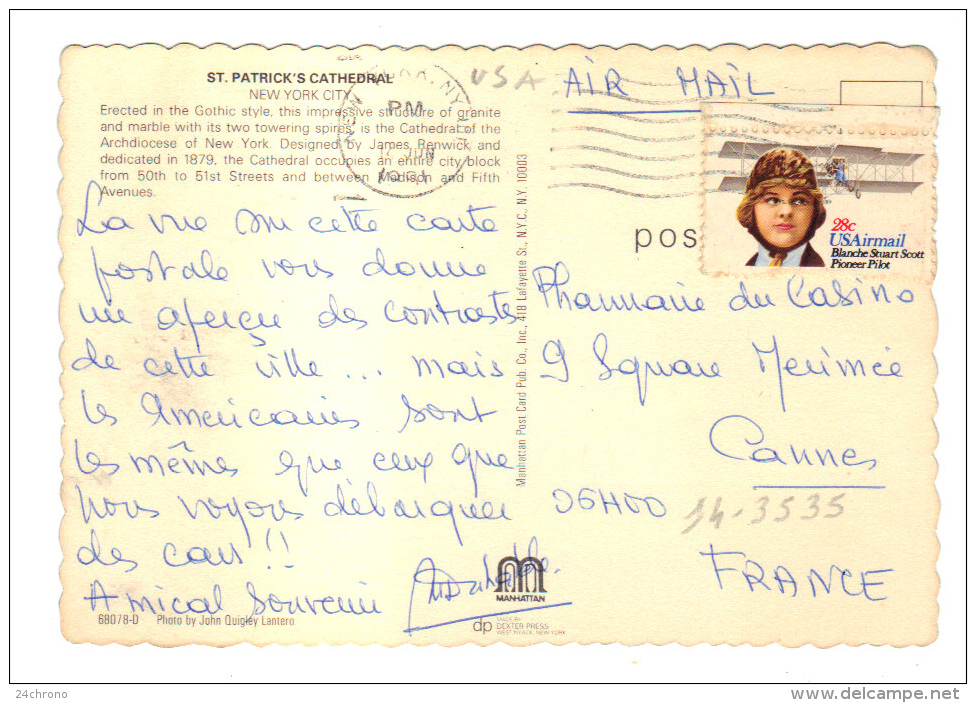 ST. PATRICK'S CATHEDRAL
NEW YORK CITY
Erected in the Gothic style, this impressive structure of granite
and marble with its two towering spires, is the Cathedral of the
Archdiocese of New York. Designed by James Renwick and
dedicated in 1879, the Cathedral occupies an entire city block
from 50th to 51st Streets and between Madison and Fifth
Avenues.
USA
AIR MAIL
PM
JUN
28c
USAirmail
Blanche Stuart Scott
Pioneer Pilot
pos
La vue sur cette carte
postale vous donne
un aperçu des contrastes
de cette ville... mais
les Américaines sont
les mêmes que ceux que
nous voyons débarquer
des cars!!
Amical Souvenir
Manhattan Post Card Pub. Co., Inc., 418 Lafayette St., N.Y.C. N.Y. 10003
Pharmacie du Casino
9 Square Merimée
Cannes
06400
14-3535
FRANCE
MANHATTAN
68078-D Photo by John Quigley Lantero
dp
MADE BY
DEXTER PRESS
WEST NYACK, NEW YORK
24chrono
delcampe.net